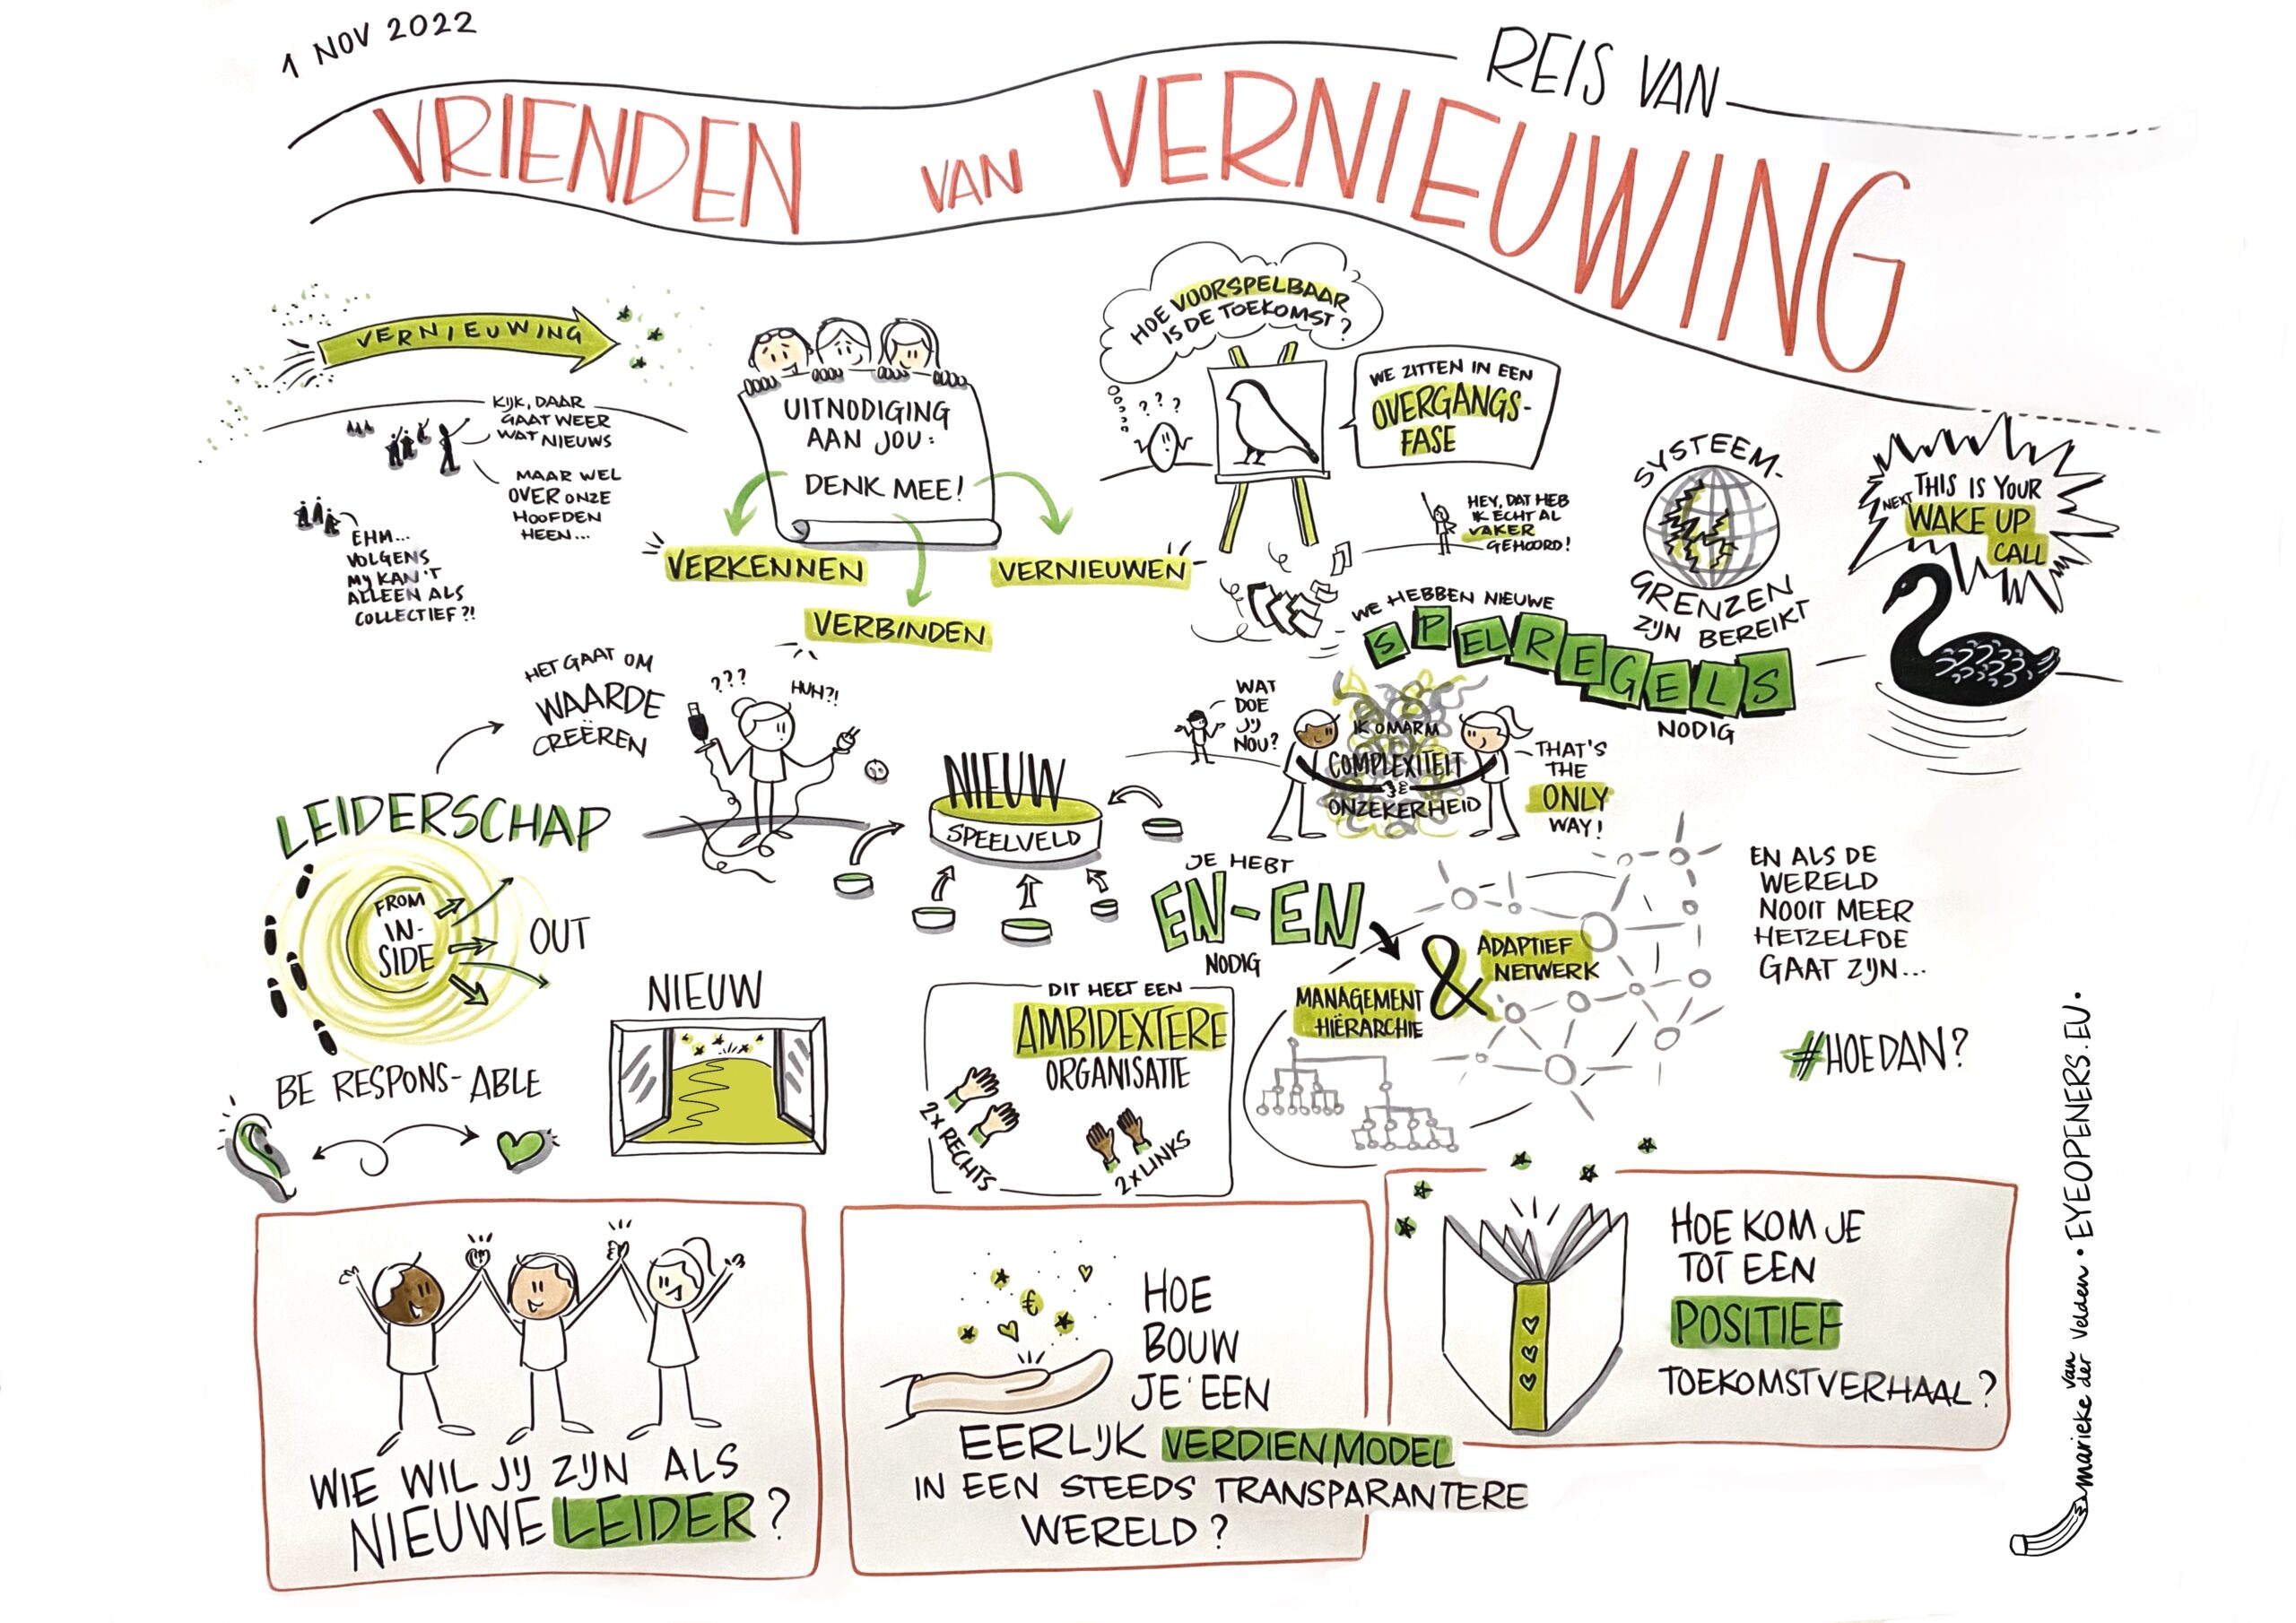 1 NOV 2022
REIS VAN
VRIENDEN VAN VERNIEUWING
VERNIEUWING
KIJK, DAAR
GAAT WEER
WAT NIEUWS
MAAR WEL
OVER ONZE
HOOFDEN
HEEN...
EHM...
VOLGENS
MIJ KAN'T
ALLEEN ALS
COLLECTIEF?!
UITNODIGING
AAN JOU:
DENK MEE!
VERKENNEN
VERBINDEN
VERNIEUWEN
HOE VOORSPELBAAR
IS DE TOEKOMST?
???
WE ZITTEN IN EEN
OVERGANGS-
FASE
HEY, DAT HEB
IK ECHT AL
VAKER
GEHOORD!
SYSTEEM-
GRENZEN
ZIJN BEREIKT
NEXT
THIS IS YOUR
WAKE UP
CALL
WE HEBBEN NIEUWE
SPELREGELS
NODIG
HET GAAT OM
WAARDE
CREËREN
???
HUH?!
WAT
DOE
JIJ
NOU?
IK OMARM
COMPLEXITEIT
&
ONZEKERHEID
THAT'S
THE
ONLY
WAY!
LEIDERSCHAP
FROM
IN-
SIDE
OUT
BE RESPONS-ABLE
NIEUW
SPEELVELD
NIEUW
JE HEBT
EN-EN
NODIG
MANAGEMENT
HIËRARCHIE
&
ADAPTIEF
NETWERK
DIT HEET EEN
AMBIDEXTERE
ORGANISATIE
2x RECHTS
2x LINKS
EN ALS DE
WERELD
NOOIT MEER
HETZELFDE
GAAT ZIJN...
#HOEDAN?
WIE WIL JIJ ZIJN ALS
NIEUWE LEIDER?
€
HOE
BOUW
JE EEN
EERLIJK VERDIENMODEL
IN EEN STEEDS TRANSPARANTERE
WERELD?
HOE KOM JE
TOT EEN
POSITIEF
TOEKOMSTVERHAAL?
marieke van der Velden • EYEOPENERS.EU •